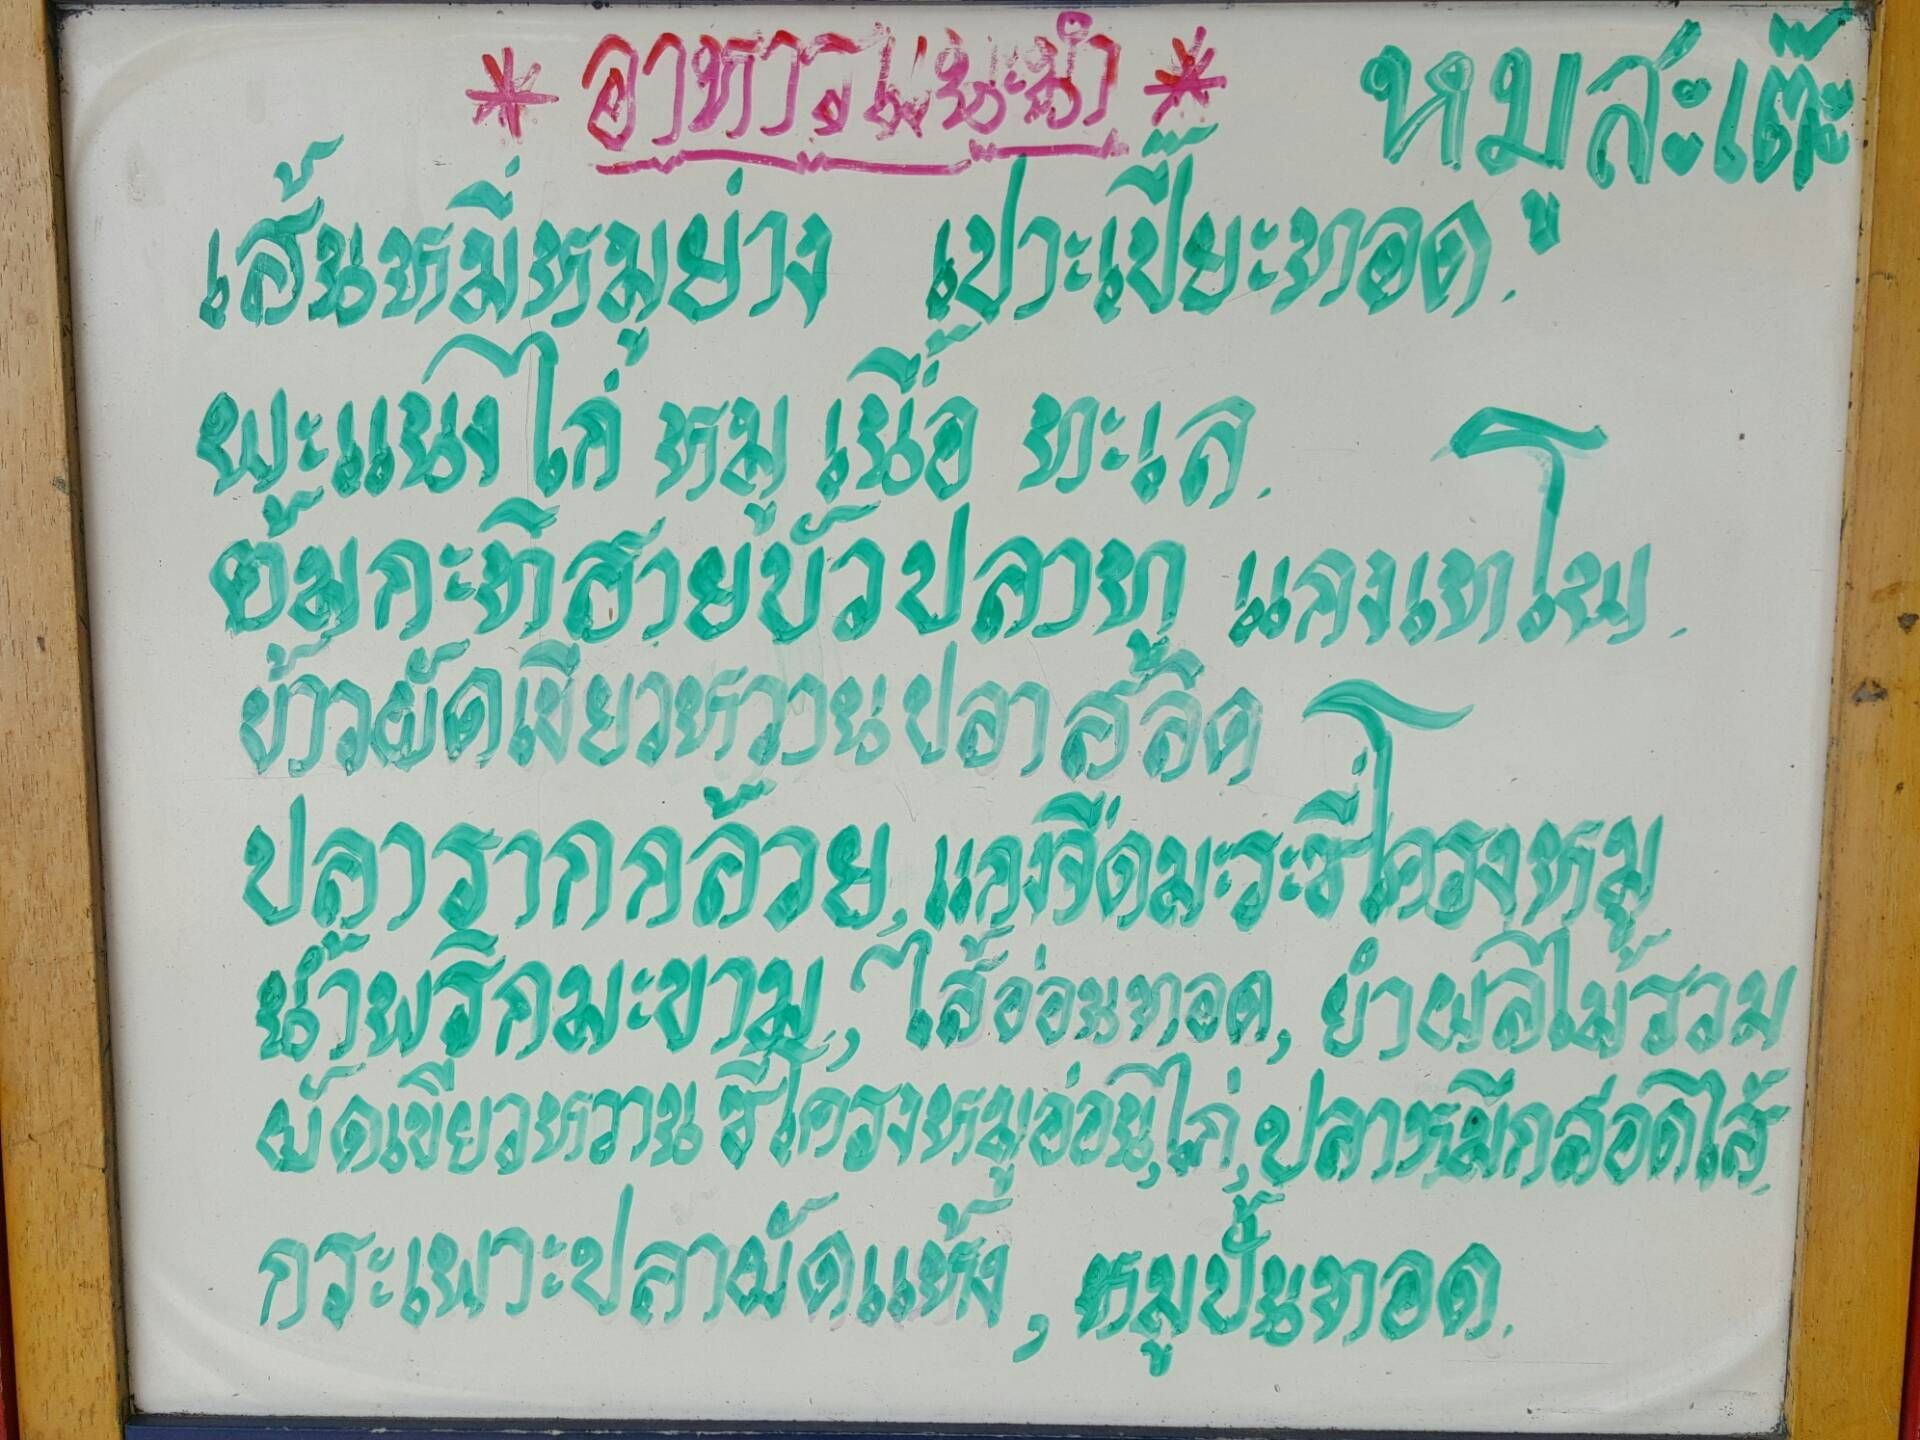 * อาหารแนะนำ * หมูสะเต๊ะ
เส้นหมี่หมูย่าง เปาะเปี๊ยะทอด.
พะแนงไก่ หมู เนื้อ ทะเล.
ต้มกะทิสายบัวปลาทู แกงเทโพ.
ข้าวผัดเขียวหวานปลาสลิด
ปลารากกล้วย, แกงจืดมะระซี่โครงหมู
น้ำพริกมะขาม, ไส้อ่อนทอด, ยำผลไม้รวม
ผัดเขียวหวานซี่โครงหมูอ่อน, ไก่, ปลาหมึกสอดไส้.
กระเพาะปลาผัดแห้ง, หมูปั้นทอด.